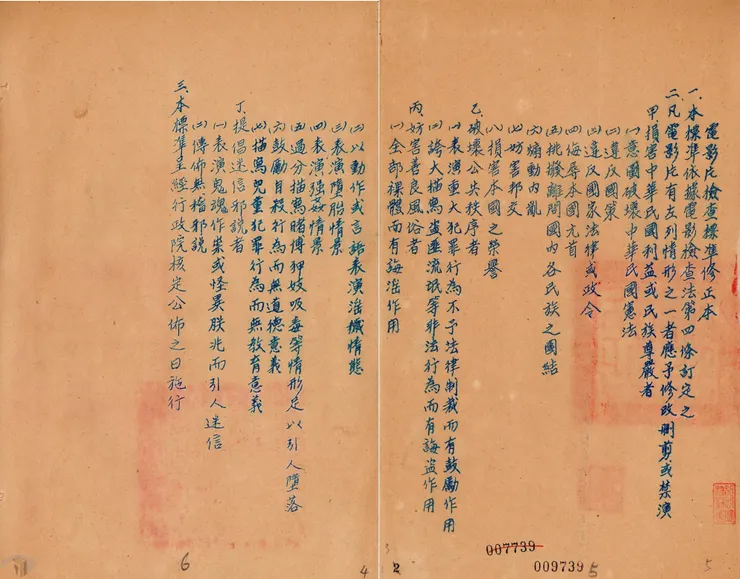 電影片檢查標準修正本
一、本標準依據電影檢查法第四條訂定之
二、凡電影片有左列情形之一者應予修改刪剪或禁演
甲、損害中華民國利益或民族尊嚴者
㈠意圖破壞中華民國憲法
㈡違反國策
㈢違反國家法律或政令
㈣侮辱本國元首
㈤挑撥離間國內各民族之團結
㈥煽動內亂
㈦妨害邦交
㈧損害本國之榮譽
乙、破壞公共秩序者
㈠表演重大犯罪行為不予法律制裁而有鼓勵作用
㈡誇大描寫盜匪流氓等非法行為而有誨盜作用
丙、妨害善良風俗者
㈠全部裸體而有誨淫作用
㈡以動作或言語表演淫穢情態
㈢表演墮胎情景
㈣表演強姦情景
㈤過分描寫賭博狎妓吸毒等情形足以引人墮落
㈥鼓勵自殺行為而無道德意義
㈦描寫兇重犯罪行為而無教育意義
丁、提倡迷信邪說者
㈠表演鬼魂作祟或怪異朕兆而引人迷信
㈡傳佈無稽邪說
三、本標準呈經行政院核定公佈之日施行
007739
009739
5
5
2
4
6